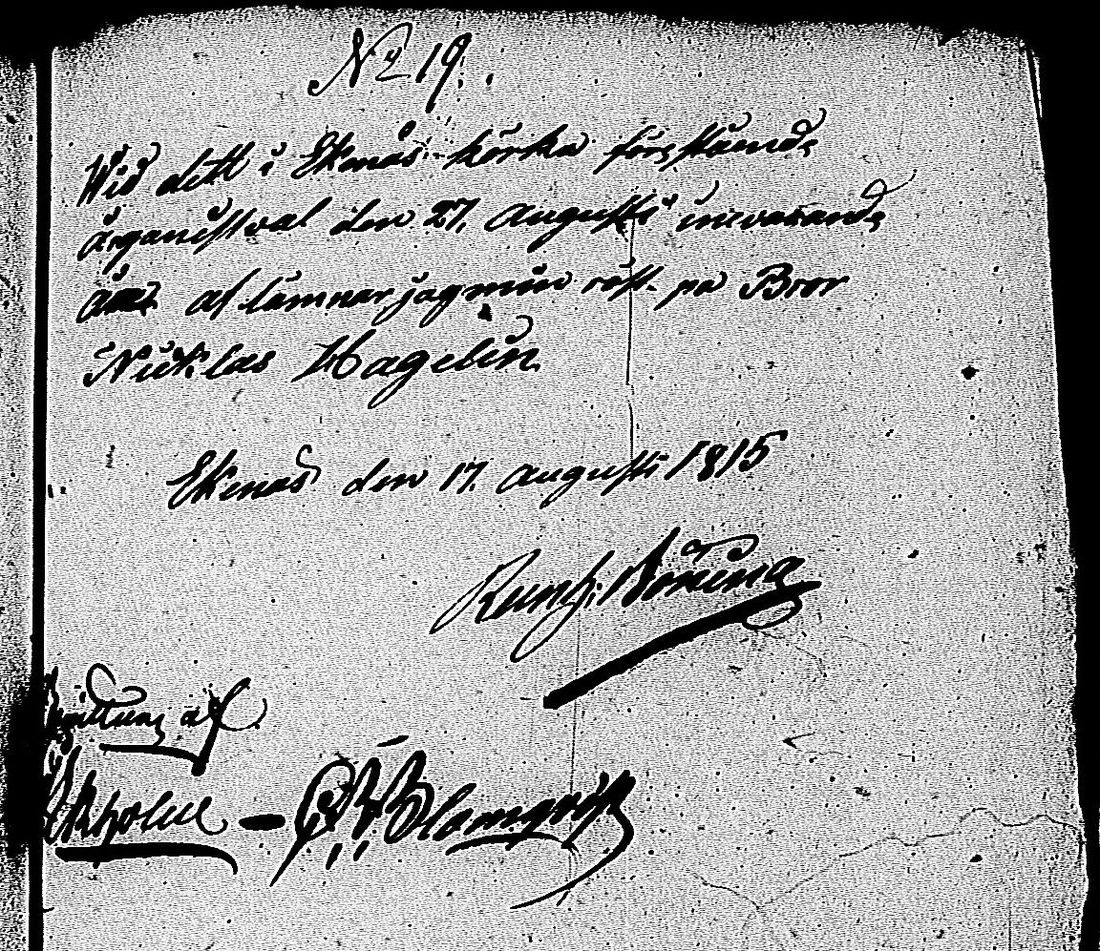 No 19.
Wid dett i Ekenäs körka förestående
årganistval den 27. augusti inevarande
året af lämnar jag min röst på Bror
Nicklas Hagelin
Ekenäs den 17. augusti 1815
Böning
af
Ekholm – Blomqvist